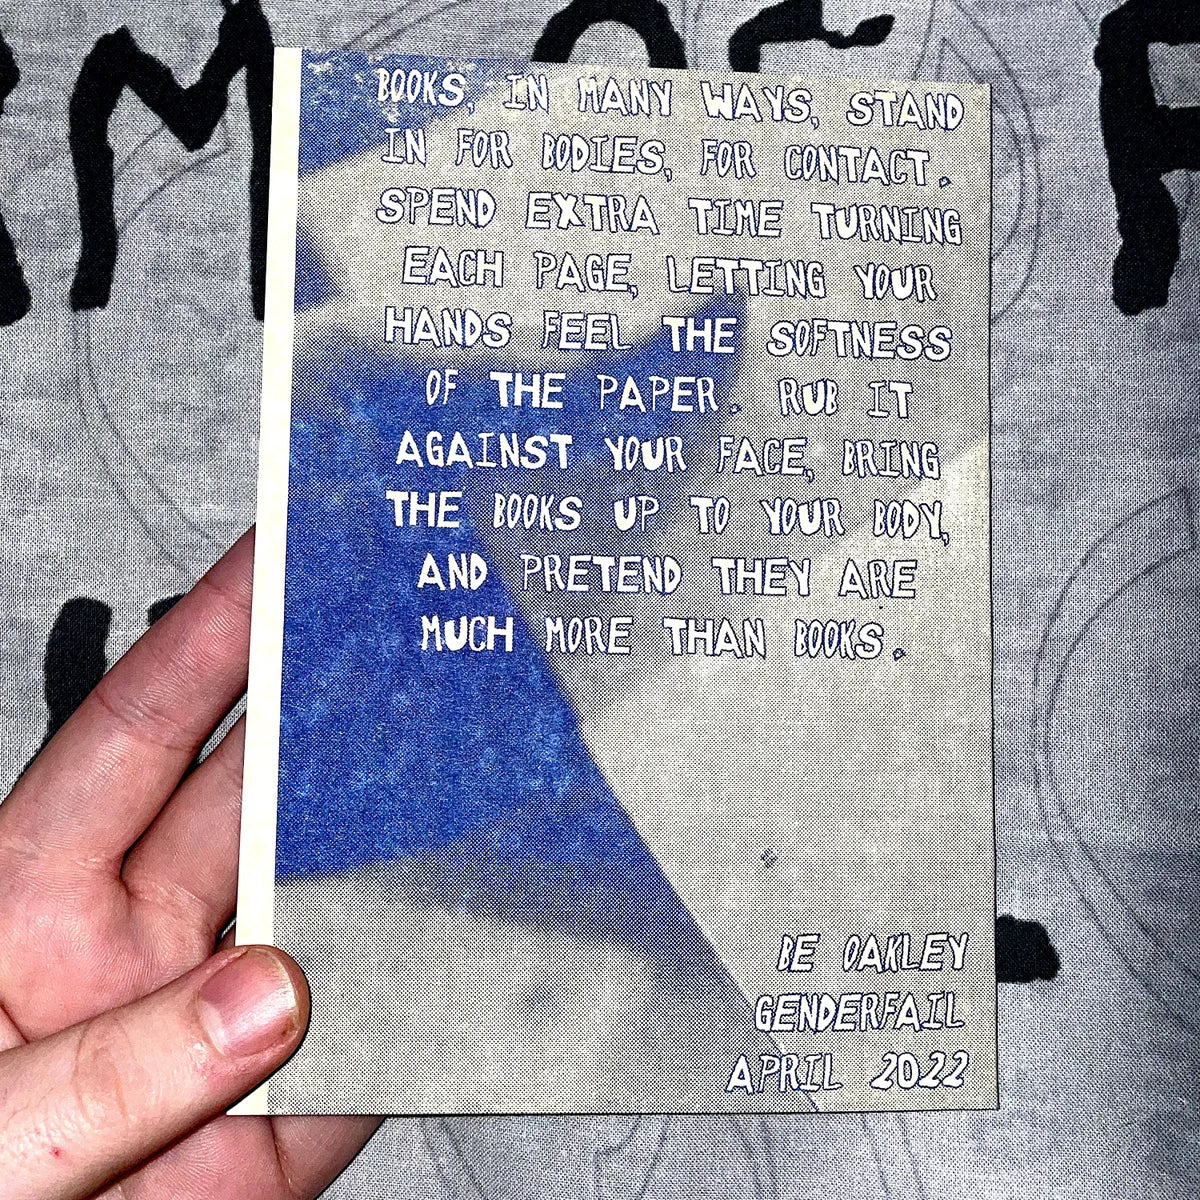 BOOKS, IN MANY WAYS, STAND
IN FOR BODIES, FOR CONTACT.
SPEND EXTRA TIME TURNING
EACH PAGE, LETTING YOUR
HANDS FEEL THE SOFTNESS
OF THE PAPER. RUB IT
AGAINST YOUR FACE, BRING
THE BOOKS UP TO YOUR BODY,
AND PRETEND THEY ARE
MUCH MORE THAN BOOKS.
BE OAKLEY
GENDERFAIL
APRIL 2022